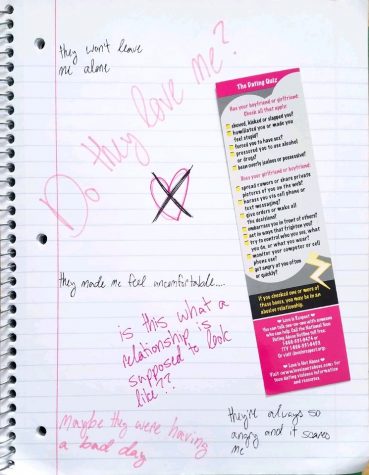 they won't leave
me alone
Do they love me?
The Dating Quiz
Has your boyfriend or girlfriend:
Check all that apply
shoved, kicked or slapped you?
humiliated you or made you
feel stupid?
forced you to have sex?
pressured you to use alcohol
or drugs?
been overly jealous or possessive?
Does your girlfriend or boyfriend:
spread rumors or share private
pictures of you on the web?
harass you via cell phone or
text messaging?
give orders or make all
the decisions?
embarrass you in front of others?
act in ways that frighten you?
try to control who you see, what
you do, or what you wear?
monitor your computer or cell
phone use?
get angry at you often
or quickly?
If you checked one or more of
these boxes, you may be in an
abusive relationship.
Love is Respect
You can talk one-on-one with someone
who can help. Call the National Teen
Dating Abuse Hotline toll free:
1-866-331-9474 or
TTY 1-866-331-8453
Or visit loveisrespect.org.
Love is Not Abuse
Visit www.loveisnotabuse.com for
teen dating violence information
and resources.
they made me feel uncomfortable....
is this what a
relationship is
supposed to look
like??
Maybe they were having
a bad day
they're always so
angry and it scares
me